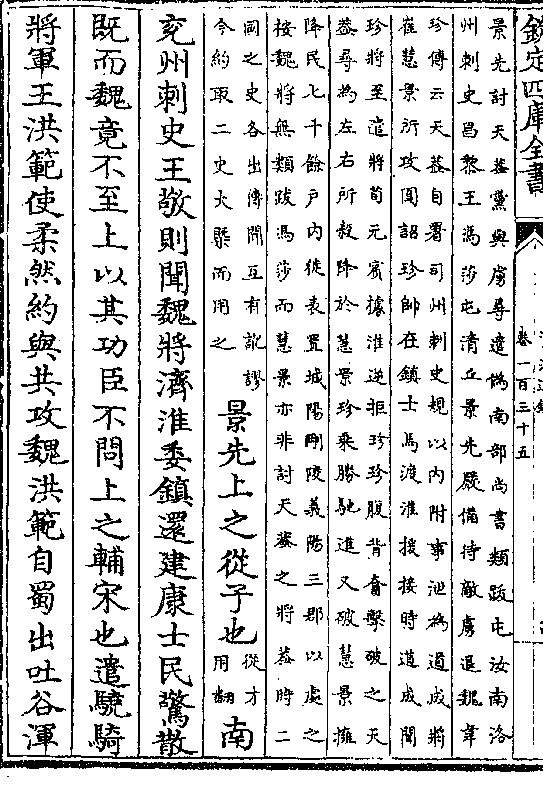 欽定四庫全書
卷一百三十五
景先討天蓋黨與虜尋遣偽南部尚書頹跋屯汝南洛
州刺史昌黎王馮莎屯清丘景先嚴備待敵虜退魏韋
珍傳云天蓋自署司州刺史規以內附事泄為道成將
崔慧景所攻圍詔珍帥在鎮士馬渡淮援接時道成聞
珍將至遣將荀元賓據淮逆拒珍珍腹背奮擊破之天
蓋尋為左右所殺降於慧景珍乘勝馳進又破慧景擁
降民七千餘戶內徙表置城陽剛陵義陽三郡以處之
按魏將無頹跋馮莎而慧景亦非討天蓋之將蓋時二
國之史各出傳聞互有訛謬
今約取二史大槩而用之
景先上之從子也
從才
用翻
南
兖州刺史王敬則聞魏將濟淮委鎮還建康士民驚散
既而魏竟不至上以其功臣不問上之輔宋也遣驍騎
將軍王洪範使柔然約與共攻魏洪範自蜀出吐谷渾